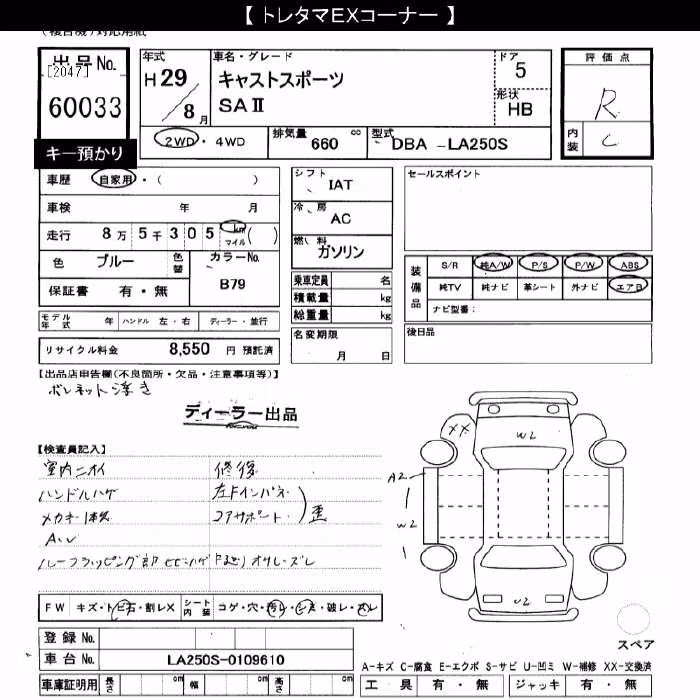 【 トレタマEXコーナー 】
(複合機)対応用紙
出品No.
[2047]
60033
キー預かり
年式
H 29 / 8 月
車名・グレード
キャストスポーツ
SAⅡ
ドア
5
形状
HB
2WD・4WD
排気量 660 cc
型式 DBA -LA250S
評価点
R
内装 C
車歴 自家用・( )
車検 年 月
走行 8万5千305 km マイル ( )
色 ブルー
色替
カラーNo.
B79
保証書 有・無
モデル年式 年 ハンドル 左・右 ディーラー・並行
リサイクル料金 8,550 円 預託済
シフト
IAT
冷房
AC
燃料
ガソリン
乗車定員 名
積載量 kg
総重量 kg
名変期限
月 日
セールスポイント
装備品
S/R 純A/W P/S P/W ABS
純TV 純ナビ 革シート 外ナビ エアB
ナビ型番:
後日品
【出品店申告欄(不良箇所・欠品・注意事項等)】
ボンネット浮き
ディーラー出品
【検査員記入】
室内ニオイ
ハンドルハゲ
メカキー1本欠
A.W
ルーフラッピング部
修復
左Fインパネ
コアサポート
歪
XX
W2
A2
W2
W2
FW キズ・トビ石・割レX
シート内装 コゲ・穴・汚レ・シミ・破レ・スレ
登録No.
車台No. LA250S-0109610
車庫証明用 長さ cm 幅 cm 高さ cm
スペア
A-キズ C-腐食 E-エクボ S-サビ U-凹ミ W-補修 XX-交換済
工具 有・無 ジャッキ 有・無